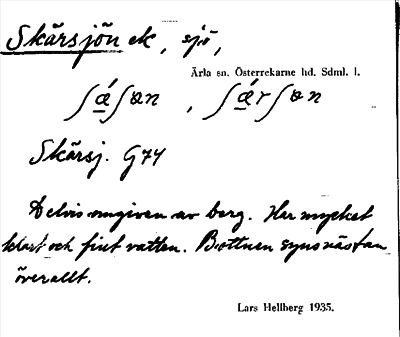 Skärsjön ek, sjö,
Ärla sn. Österrekarne hd. Sdml. l.
ʃǽʃɷn, ʃǽrʃɷn
Skärsj. G74
Delvis omgiven av berg. Har mycket
klart och fint vatten. Bottnen synes nästan
överallt.
Lars Hellberg 1935.